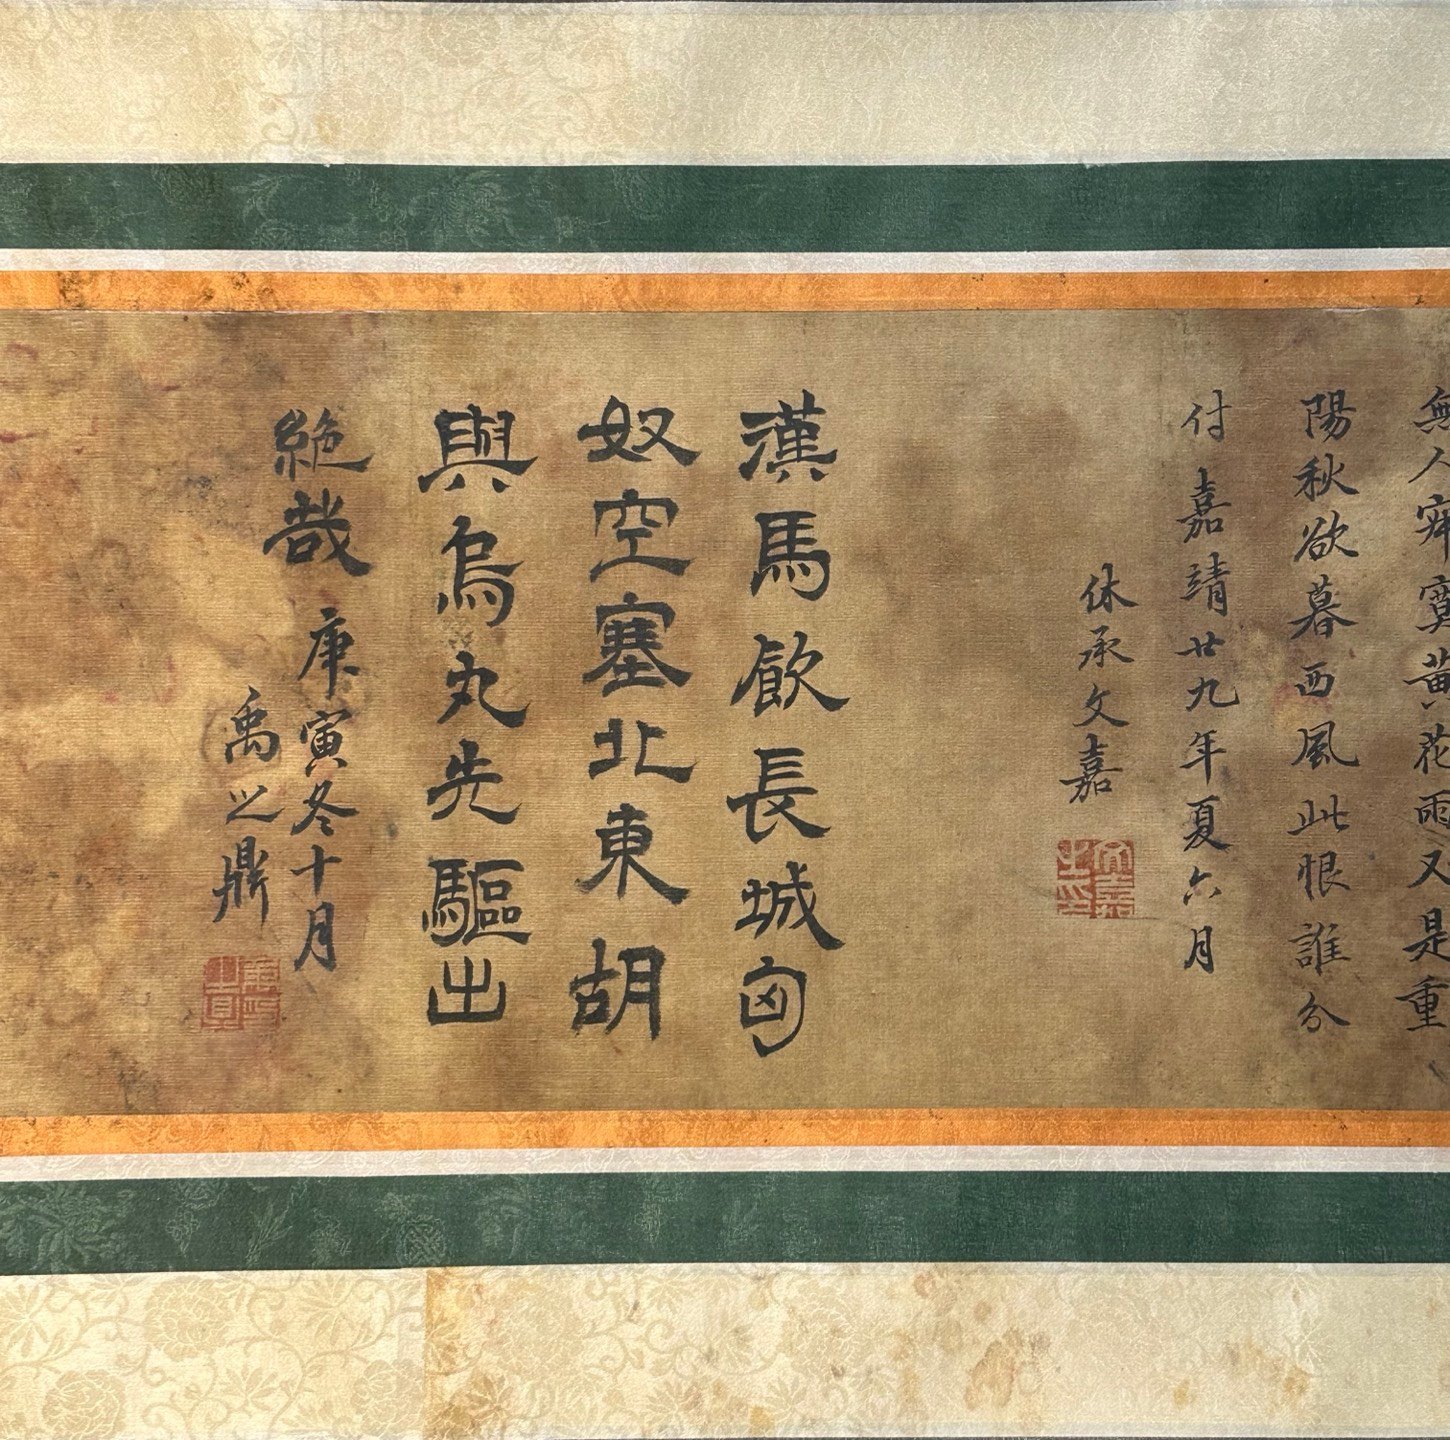 無人穽寞黄花雨又是重
陽秋欲暮西風此恨誰分
付嘉靖廿九年夏六月
休承文嘉
文嘉之印
漢馬飲長城匈
奴空塞北東胡
與烏丸先驅出
絶哉庚寅冬十月
禹之鼎